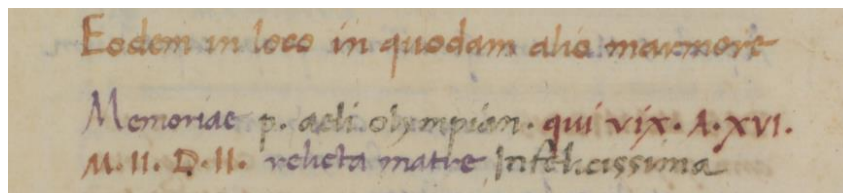 Eodem in loco in quodam alio marmore
Memoriae p. aeli olympian. qui vix. A. XVI.
M. II. D. II. relicta matre Infelicissima